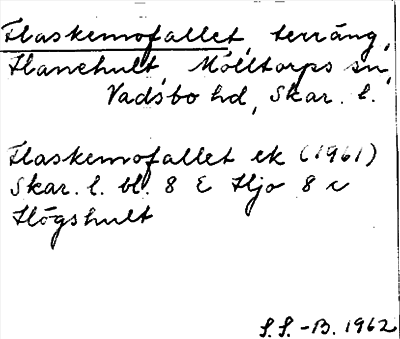 Flaskemofallet, terräng,
Hanehult, Mölltorps sn,
Vadsbo hd, Skar. l.
Flaskemofallet ek (1961)
Skar. l. bl. 8 E Hjo 8 c
Högshult
S.S.-B. 1962